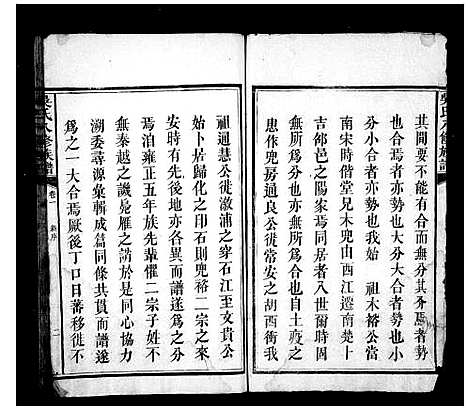 其間要不能有合而無分其分焉者勢
也合焉者亦勢也大分大合者勢也小
分小合者亦勢也我始 祖木裕公當
南宋時偕堂兄木兜由西江遷南楚十
吉郃邑之陽家焉同居者入世爾時固
無所爲分也亦無所爲合也自土疫之
後兜房通良公徙常安之胡西衝我
祖迵慧公徙漵浦之穿石江至文貴公
始卜居歸化之印石則兜裕二宗之來
有先後地亦各異而譜遂爲之分
焉泊雍正五年族先輩懼二宗子姓不
無秦越之譏鳧雁之誚於是同心協力
溯委尋源彙輯成篇同條共貫而譜遂
爲之一大合焉厥後丁口日蕃移徙不
吳氏八修族譜
卷一